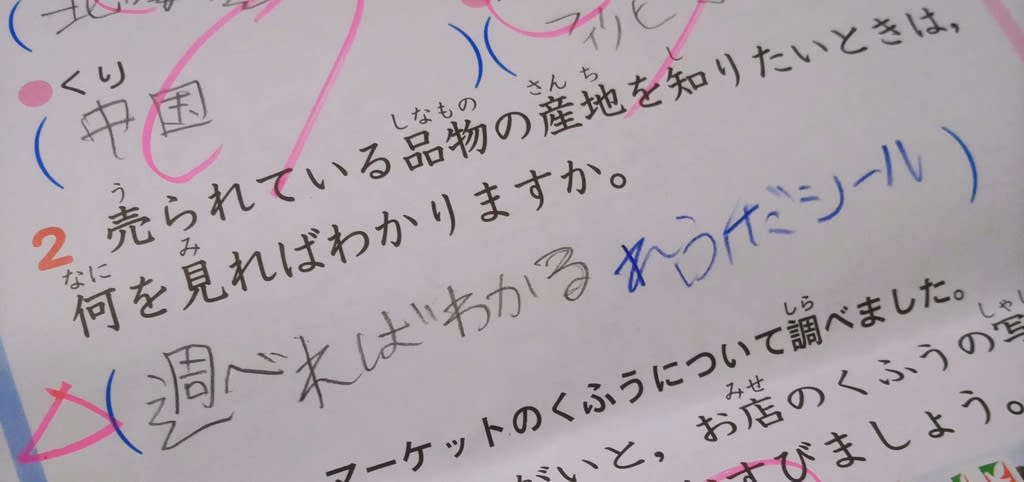 フィリピ
くり
(中国
しなもの さんち し
)(
う
2 売られている品物の産地を知りたいときは,
なに み
何を見ればわかりますか。
(週べればわかる シール)
しら
マーケットのくふうについて調べました。
みせ しゃし
がいと,お店のくふうの写
すびましょう。